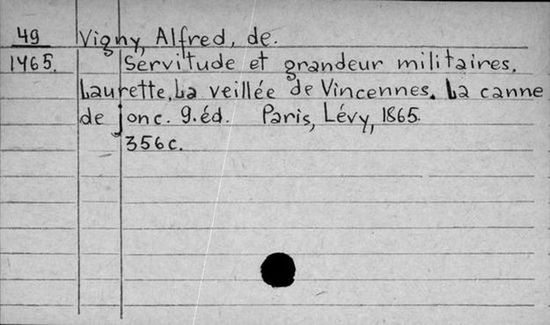 49 Vigny, Alfred, de.
1465. Servitude et grandeur militaires.
Laurette. La veillée de Vincennes. La canne
de jonc. 9.éd. Paris, Lévy, 1865.
356c.